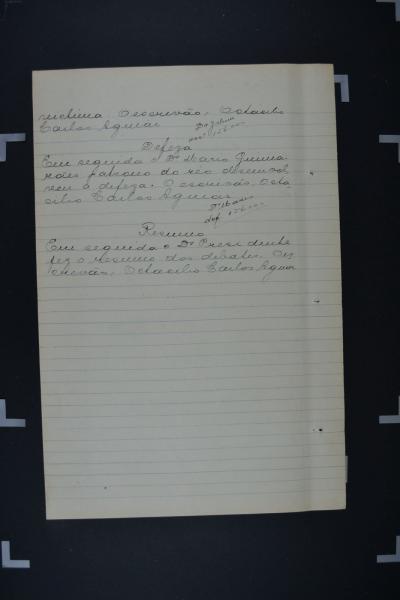 victima. O escrivão, Octacilio
Carlos Aguiar
Defeza
Em seguida o Dr Mario Guima-
rães patrono do réo desenvol
veu a defeza. O escrivão, Octa
cilio Carlos Aguiar
Dr Mario
def
Resumo
Em seguida o Dr Presidente
fez o resumo dos debates. O es
crivão, Octacilio Carlos Aguiar